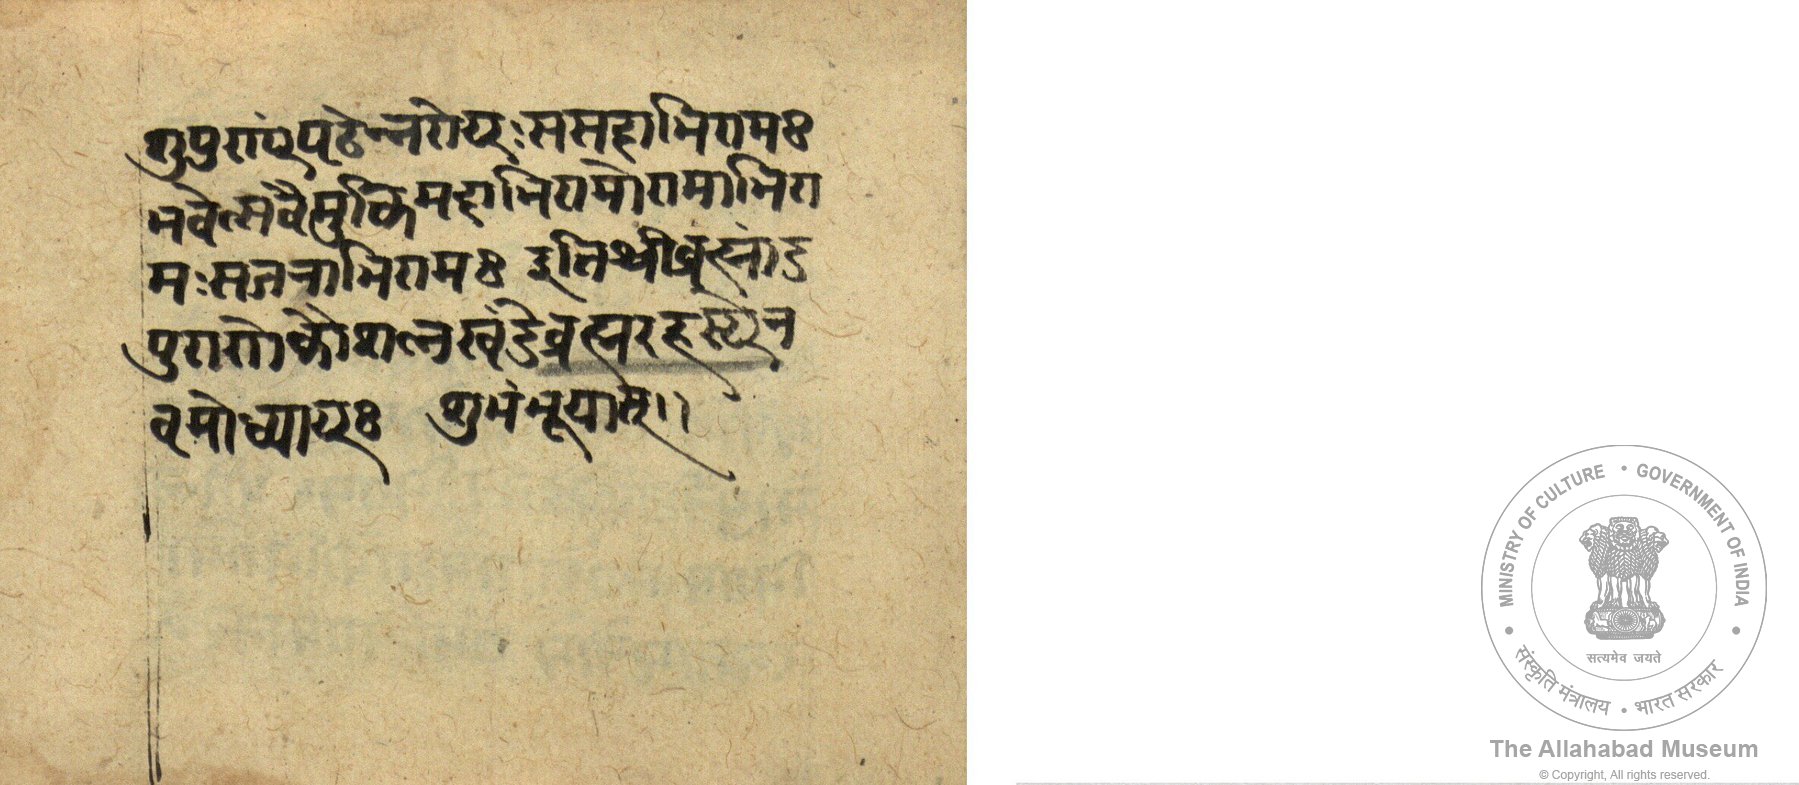 शुपुराणंपठेन्नरोयः ससदाभिराम ४
भवेत्सवैमुक्तिमहाभिरामोरामाभिरा
मः सजनाभिराम ४ इतिश्रीब्रह्मांड
पुराणेकोशलखंडेब्रह्मरहस्येन
वमोध्याय ४ शुभंभूयात् ।।
MINISTRY OF CULTURE • GOVERNMENT OF INDIA
सत्यमेव जयते
संस्कृति मंत्रालय • भारत सरकार
The Allahabad Museum
© Copyright, All rights reserved.